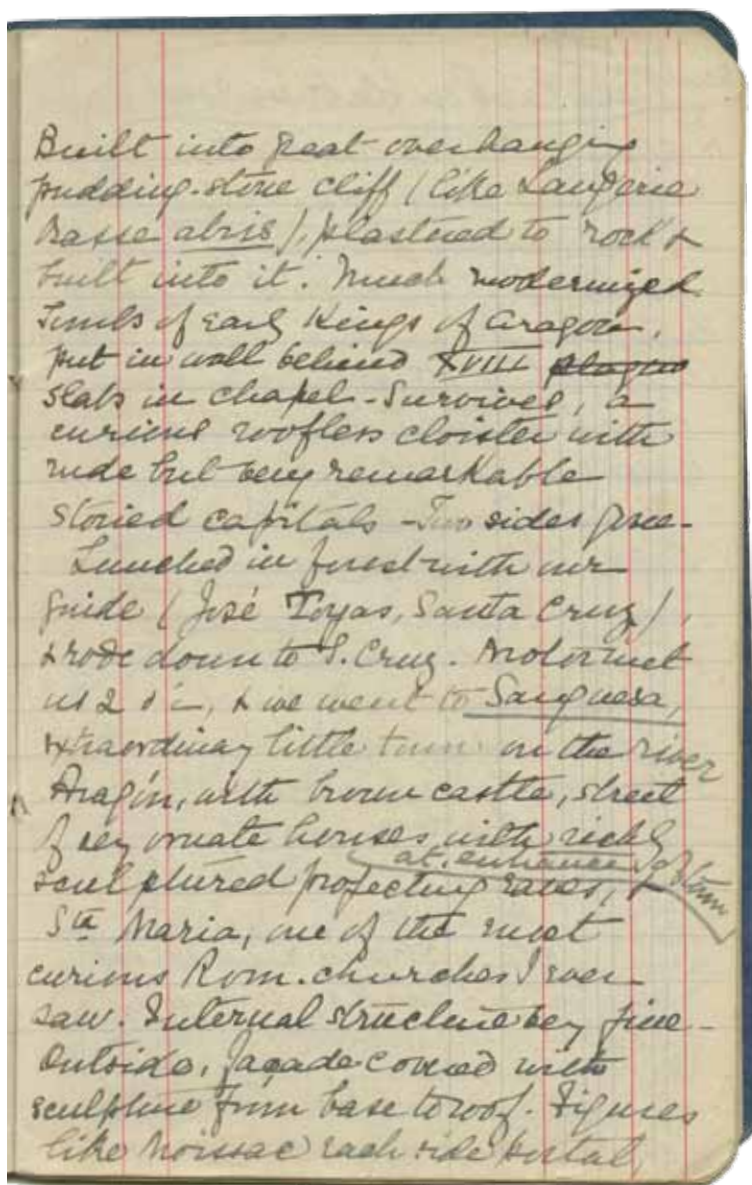 Built into great overhanging
pudding-stone cliff (like Laugerie
Basse abris), plastered to rock &
built into it. Much modernized.
Tombs of early Kings of Aragon,
put in wall behind XVIII plaques
slabs in chapel - Survives, a
curious roofless cloister with
rude but very remarkable
storied capitals - Two sides gone -
Lunched in forest with our
guide (José Toyas, Santa Cruz),
& rode down to S. Cruz. Motor met
us 2 o'c, & we went to Sanguesa,
extraordinary little town on the river
Aragón, with brown castle, street
of very ornate houses with richly
sculptured projecting eaves, &
at entrance of town
Sta Maria, one of the most
curious Rom. churches I ever
saw. Internal structure very fine -
Outside, façade covered with
sculpture from base to roof. Figures
like Moissac each side portal,